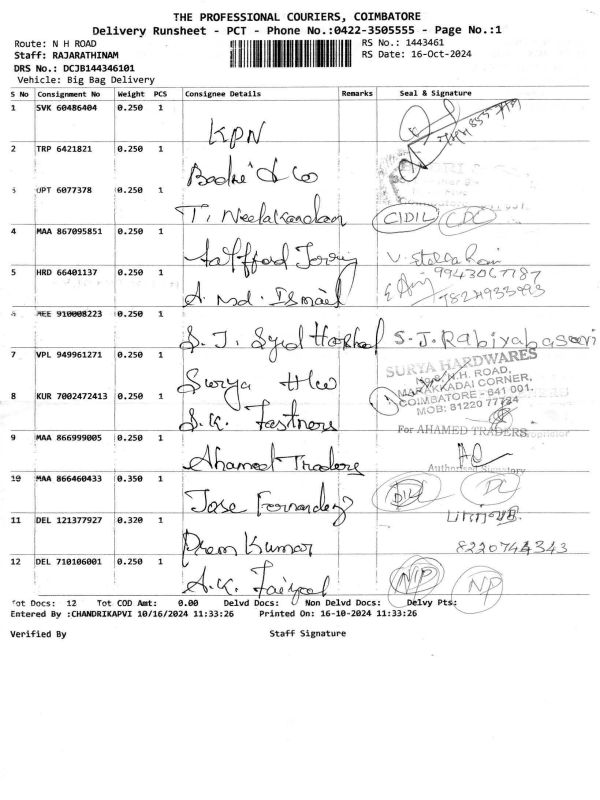 THE PROFESSIONAL COURIERS, COIMBATORE
Delivery Runsheet - PCT - Phone No.:0422-3505555 - Page No.:1
Route: N H ROAD RS No.: 1443461
Staff: RAJARATHINAM RS Date: 16-Oct-2024
DRS No.: DCJB144346101
Vehicle: Big Bag Delivery
S No Consignment No Weight PCS Consignee Details Remarks Seal & Signature
1 SVK 60486404 0.250 1 KPN
2 TRP 6421821 0.250 1 & Co
3 UPT 6077378 0.250 1 T. Neelakandan CIDIL CDC
4 MAA 867095851 0.250 1
5 HRD 66401137 0.250 1 A. Md. Ismail 9943067787
6 MEE 910008223 0.250 1 S. J. Syed S.J.Rabiya
7 VPL 949961271 0.250 1 Surya H/w
SURYA HARDWARES
N.H. ROAD,
MARAKKADAI CORNER,
COIMBATORE - 641 001.
MOB: 81220 77784
8 KUR 7002472413 0.250 1 S.K. Fastners
For AHAMED TRADERS
Proprietor
9 MAA 866999005 0.250 1 Ahamed Traders
Authorised Signatory
10 MAA 866460433 0.350 1 Jose Fernandez DIL DC
11 DEL 121377927 0.320 1 Prem Kumar 8220744343
12 DEL 710106001 0.250 1 A.K. NP NP
Tot Docs: 12 Tot COD Amt: 0.00 Delvd Docs: Non Delvd Docs: Delvy Pts:
Entered By :CHANDRIKAPVI 10/16/2024 11:33:26 Printed On: 16-10-2024 11:33:26
Verified By Staff Signature